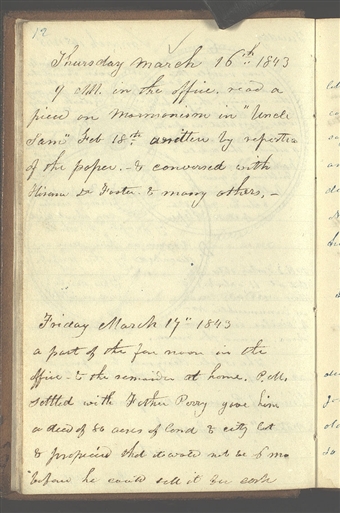 12
Thursday March 16th 1843
9 A.M. in the office. read a
piece on Mormonism in "Uncle
Sam" Feb 18th written by reporter
of the paper. - & conversed with
Hiram Dr Foster. & many others. -
Friday March 17th 1843
a part of the fore noon in the
office - & the remainder at home. P.M.
settled with Father Perry gave him
a deed of 80 acres of land & city lot
& prophecied that it would not be 6 mo
before he could sell it for cash